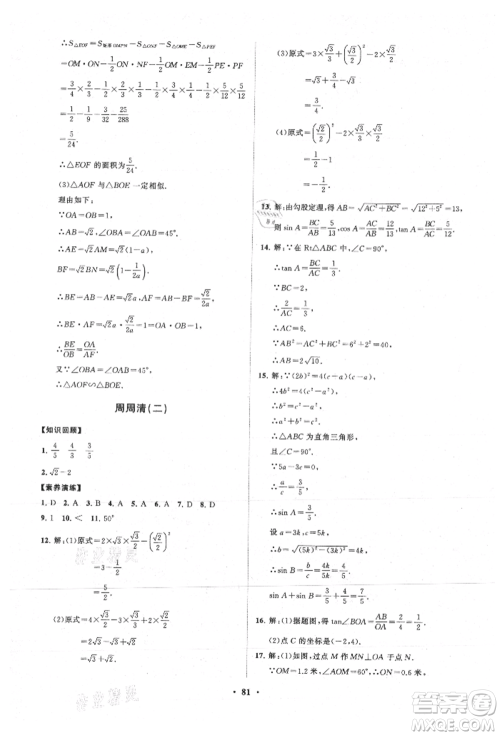 ∴S△EOF=S矩形OMPN-S△ONF-S△EPF
=OM·ON-1/2OM·NF-1/2PE·PF-1/2ON·
=3/4×1/3-1/2×3/4×1/3-1/2×5/12×5/12
=1/4-1/8-
=5/24.
∴△EOF的面积为5/24.
(3)△AOF与△BOE一定相似.
理由如下:
∵OA=OB=1,
∴AB=√2,∠OBA=∠OAB=45°.
∴BE=√2a,
BF=√2BN=√2/2a.
∴BE-AB-AE=√2a-√2,
∴AE·BF=√2a·√2/2a=1.
∴BE/OA=OB/AF.
又∵∠OBA=∠OAB=45°,
∴△AOF∽△BOE.
周周清(二)
【知识回顾】
1. 4/5 3/5 4/3
2.√2-2
【素养演练】
1. D 2. A 3. D 4. A 5. B 6. A 7. D 8. D
9. 1 10.< 11. 50°
12. 解:(1)原式=2×√3×√3/2+(√2/2)²
=3+1/2
=7/2.
(2)原式=4×√3/2+3×√3/3-2×√2/2
=2√3+√3-√2
=3√3-√2.
(3)原式=3×√3/3+(√2/2)²-2×√3/2
=√3+1/2-√3
=1/2.
(4)原式=(√2/2)²-2×1/2+√3×√3/3
=1/2-1+1
=1/2.
13. 解:由勾股定理,得AB=√AC²+BC²=√12²+5²=13,
∴sin A=BC/AB=5/13,cos A=AC/AB=12/13,tan A=BC/AC=5/12.
14. 解:∵在Rt△ABC中,∠C=90°,
∴tan A=BC/AC=1/3.
∵BC=2,
∴2/AC=1/3,
∴AC=6.
∵AB²=AC²+BC²=40,
∴AB=2√10.
15. 解:∵(2b)²=4(c+a)(c-a),
∴4b²=4(c²-a²),
∴b²=c²-a²,
∴a²+b²=c²,
∴△ABC为直角三角形,
且∠C=90°.
∵5a-3c=0,
∴a/c=3/5,
∴sin A=3/5.
设a=3k,c=5k,
∴b=√(5k)²-(3k)²=4k,
∴sin B=b/c=4k/5k=4/5,
∴sin A+sin B=3/5+4/5=7/5.
16. 解:(1)据题图,得tan∠BOA=AB/OA=4/2=2.
(2)点C的坐标是(-2,4).
17. 解:(1)过点A作AN⊥OM于点N.
∵OM=1.2米,AM=0.6米,
81